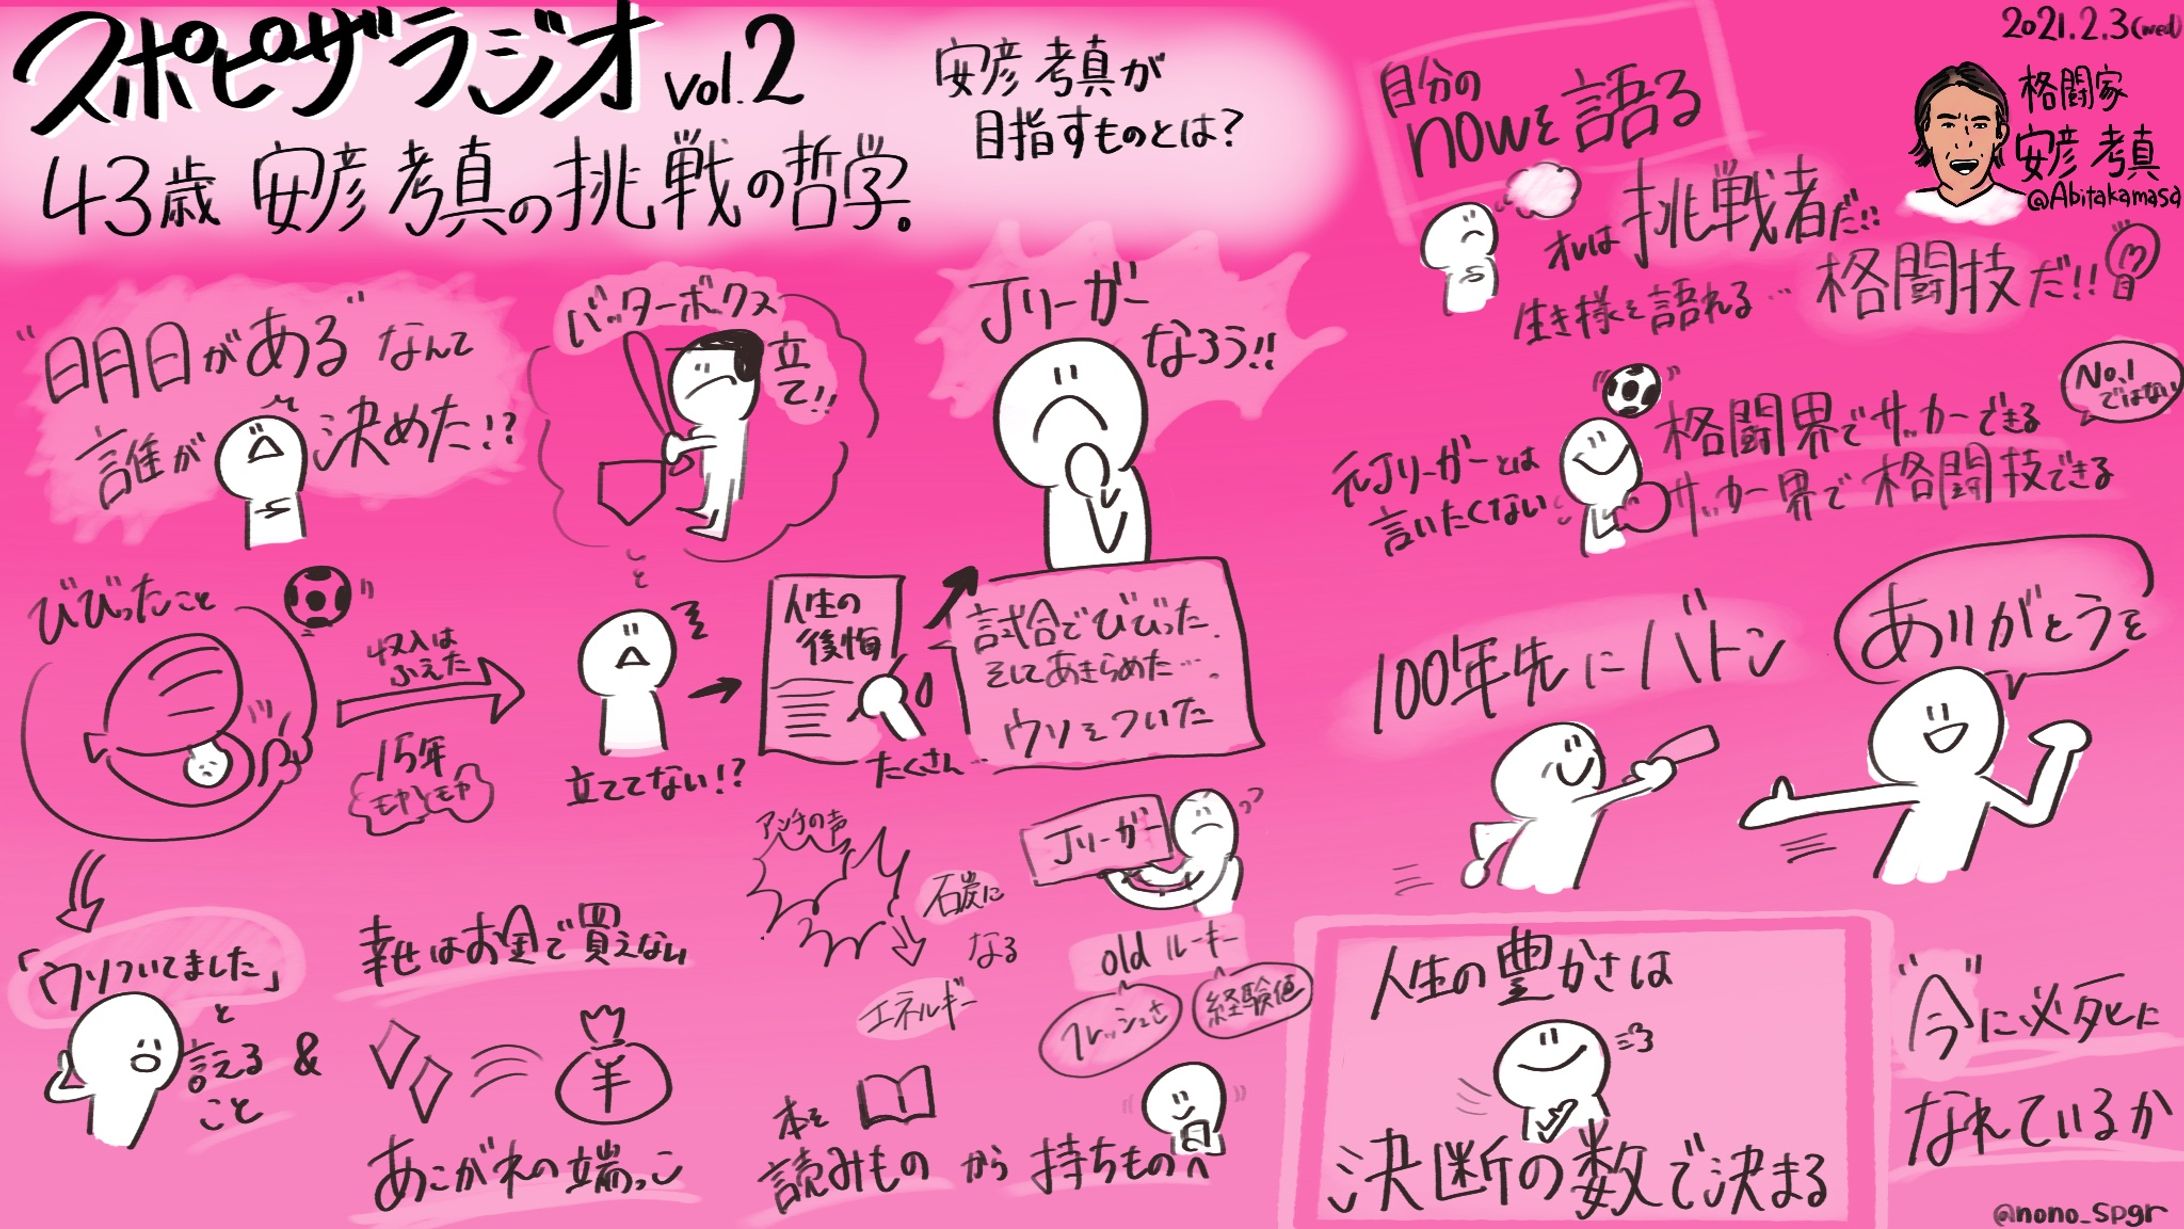 スポピザラジオ vol.2
43歳 安彦考真の挑戦の哲学。
安彦考真が
目指すものとは?
2021.2.3(wed)
格闘家
安彦考真
@Abitakamasa
"明日がある"なんて
誰が決めた!?
バッターボックス
立て!!
Jリーガー
なろう!!
びびったこと
収入は
ふえた
15年
モヤモヤ
と
立ててない!?
人生の
後悔
たくさん…
試合でびびった.
そしてあきらめた….
ウソをついた
「ウソついてました」
と
言える
こと
&
幸せはお金で買えない
¥
あこがれの端っこ
アンチの声
石炭に
なる
エネルギー
Jリーガー
old ルーキー
フレッシュさ
経験値
本を
読みもの から 持ちものへ
自分の
nowを語る
オレは挑戦者だ!!
生き様を語れる… 格闘技だ!!
元Jリーガーとは
言いたくない
格闘界でサッカーできる
サッカー界で格闘技できる
No.1
ではない
100年先にバトン
ありがとうを
人生の豊かさは
決断の数で決まる
"今"に必死に
なれているか
@nono_spgr